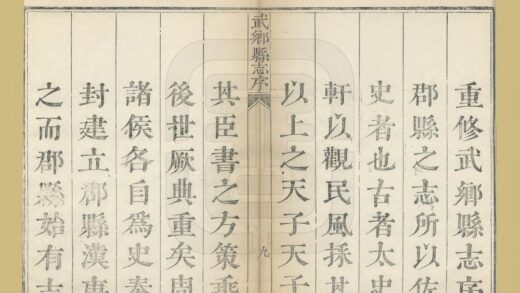 重修武鄉縣志序
郡縣之志所以佐
史者也古者太史
軒以觀民風採其
以上之天子天子
武鄉縣志序
九
其臣書之方策垂
後世厥典重矣周
諸侯各自爲史秦
封建立郡縣漢
之而郡縣始有志